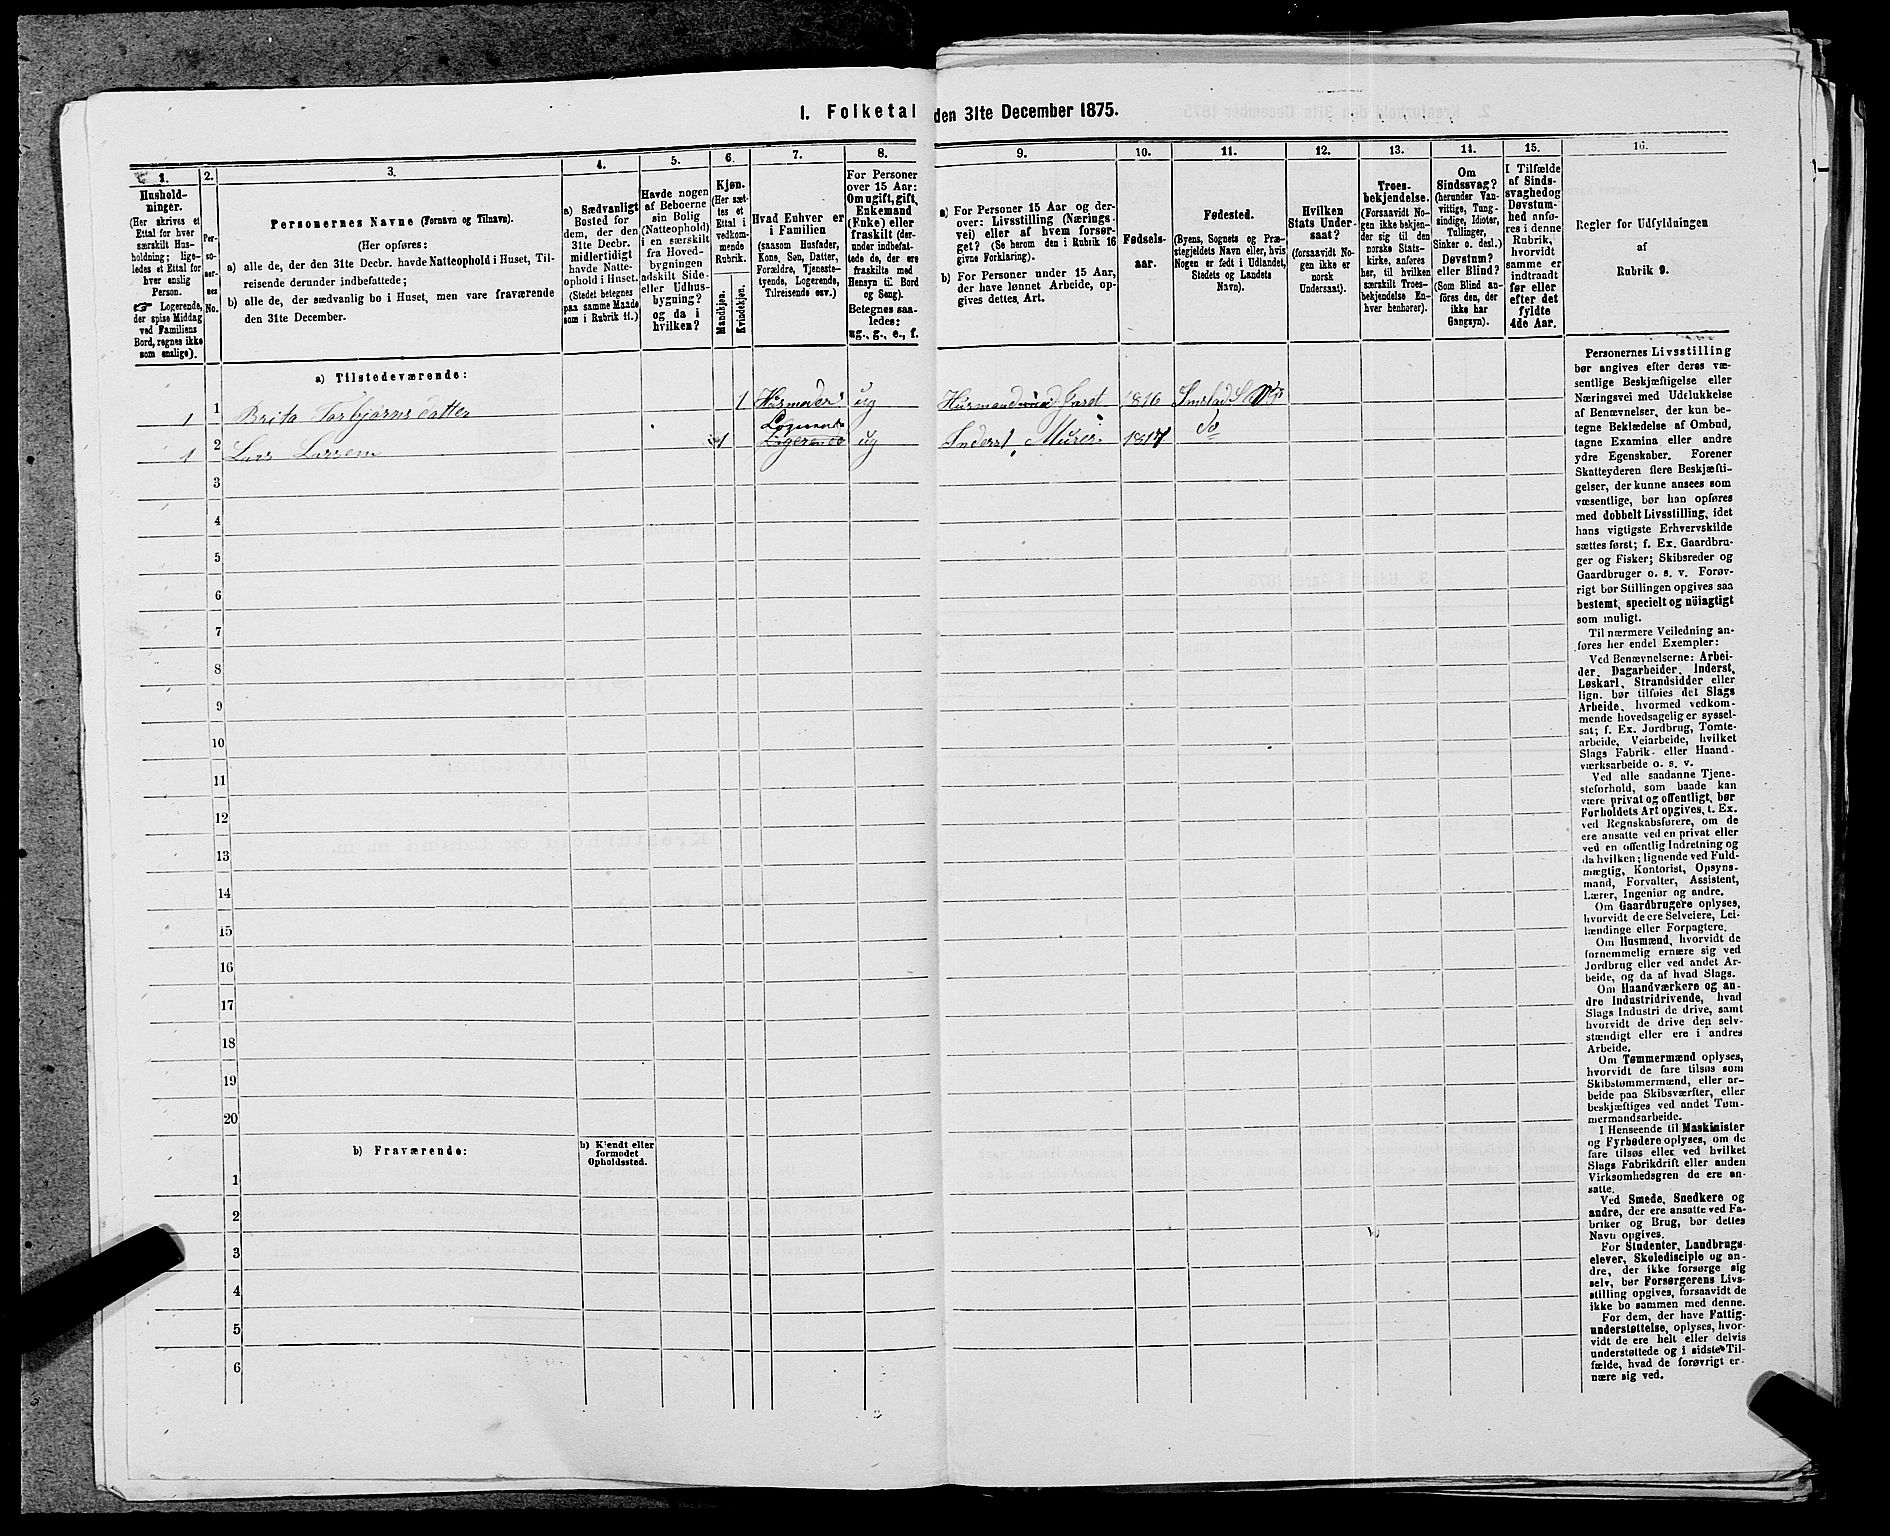 1. Folketal den 31te December 1875.
1.
Hushold-
ninger.
(Her skrives et
Ettal for hver
særskilt Hus-
holdning; lige-
ledes et Ettal for
hver enslig
Person.
☞ Logerende,
der spise Middag
ved Familiens
Bord, regnes ikke
som enslige).
2.
Per-
so-
ner-
nes
No.
3.
Personernes Navne (Fornavn og Tilnavn).
(Her opføres:
a) alle de, der den 31te Decbr. havde Natteophold i Huset, Til-
reisende derunder indbefattede;
b) alle de, der sædvanlig bo i Huset, men vare fraværende
den 31te December.
4.
a) Sædvanligt
Bosted for
dem, der den
31te Decbr.
midlertidigt
havde Natte-
ophold i Huset.
(Stedet betegnes
paa samme Maade
som i Rubrik 11.)
5.
Havde nogen
af Beboerne
sin Bolig
(Natteophold)
i en særskilt
fra Hoved-
bygningen
adskilt Side-
eller Udhus-
bygning?
og da i
hvilken?
6.
Kjøn.
(Her sæt-
tes et
Ettal i
vedkom-
mende
Rubrik.
Mandkjøn.
Kvindekjøn.
7.
Hvad Enhver er
i Familien
(saasom Husfader,
Kone, Søn, Datter,
Forældre, Tjeneste-
tyende, Logerende,
Tilreisende osv.)
8.
For Personer
over 15 Aar:
Om ugift, gift,
Enkemand
(Enke) eller
fraskilt (der-
under indbefat-
tede de, der ere
fraskilte med
Hensyn til Bord
og Seng).
Betegnes saa-
ledes:
ug., g., e., f.
9.
a) For Personer 15 Aar og der-
over: Livsstilling (Nærings-
vei) eller af hvem forsør-
get? (Se herom den i Rubrik 16
givne Forklaring).
b) For Personer under 15 Aar,
der have lønnet Arbeide, op-
gives dettes Art.
10.
Fødsels-
aar.
11.
Fødested.
(Byens, Sognets og Præ-
stegjeldets Navn eller, hvis
Nogen er født i Udlandet,
Stedets og Landets
Navn).
12.
Hvilken
Stats Under-
saat?
(forsaavidt No-
gen ikke er
norsk
Undersaat).
13.
Troes-
bekjendelse.
(Forsaavidt No-
gen ikke bekjen-
der sig til den
norske Stats-
kirke, anføres
her, til hvilken
særskilt Troes-
bekjendelse En-
hver henhorer).
14.
Om
Sindssvag?
(herunder Van-
vittige, Tung-
sindige, Idioter,
Tullinger,
Sinker o. desl.)
Døvstum?
eller Blind?
(Som Blind an-
føres den, der
ikke har
Gangsyn).
15.
I Tilfælde
af Sinds-
svaghed og
Døvstum-
hed anfø-
res i denne
Rubrik,
hvorvidt
samme er
indtraadt
før eller
efter det
fyldte
4de Aar.
16.
Regler for Udfyldningen
af
Rubrik 9.
a) Tilstedeværende:
1 1 Brita Torbjørnsdatter 1 Husmoder ug 1816
Logerende
1 2 Lars Larsen 1 Logerende ug Inderst, Murer 1817 Do
3
4
5
6
7
8
9
10
11
12
13
14
15
16
17
18
19
20
b) Fraværende:
b) Kjendt eller
formodet
Opholdssted.
1
2
3
4
5
6
Personernes Livsstilling
bør angives efter deres væ-
sentlige Beskjæftigelse eller
Næringsvei med Udelukkelse
af Benævnelser, der kun be-
tegne Beklædelse af Ombud,
tagne Examina eller andre
ydre Egenskaber. Forener
Skatteyderen flere Beskjæfti-
gelser, der kunne ansees som
væsentlige, bør han opføres
med dobbelt Livsstilling, idet
hans vigtigste Erhvervskilde
sættes først; f. Ex. Gaardbru-
ger og Fisker; Skibsreder og
Gaardbruger o. s. v. Forøv-
rigt bør Stillingen opgives saa
bestemt, specielt og nöiagtigt
som muligt.
Til nærmere Veiledning an-
føres her endel Exempler:
Ved Benævnelserne: Arbei-
der, Dagarbeider, Inderst,
Løskarl, Strandsidder eller
lign. bør tilføies det Slags
Arbeide, hvormed vedkom-
mende hovedsagelig er syssel-
sat; f. Ex. Jordbrug, Tomte-
arbeide, Veiarbeide, hvilket
Slags Fabrik- eller Haand-
værksarbeide o. s. v.
Ved alle saadanne Tjene-
steforhold, som baade kan
være privat og offentligt, bør
Forholdets Art opgives, t. Ex.
ved Regnskabsførere, om de
ere ansatte ved en privat eller
ved en offentlig Indretning og
da hvilken; lignende ved Fuld-
mægtig, Kontorist, Opsyns-
mand, Forvalter, Assistent,
Lærer, Ingeniør og andre.
Om Gaardbrugere oplyses,
hvorvidt de ere Selveiere, Lei-
lændinge eller Forpagtere.
Om Husmænd, hvorvidt de
fornemmelig ernære sig ved
Jordbrug eller ved andet Ar-
beide, og da af hvad Slags.
Om Haandværkere og an-
dre Industridrivende, hvad
Slags Industri de drive, samt
hvorvidt de drive den selv-
stændigt eller ere i andres
Arbeide.
Om Tømmermænd oplyses,
hvorvidt de fare tilsøs som
Skibstømmermænd, eller ar-
beide paa Skibsværfter, eller
beskjæftiges ved andet Tøm-
mermandsarbeide.
I Henseende til Maskinister
og Fyrbødere oplyses, om de
fare tilsøs eller ved hvilket
Slags Fabrikdrift eller anden
Virksomhedsgren de ere an-
satte.
Ved Smede, Snedkere og
andre, der ere ansatte ved Fa-
briker og Brug, bør dettes
Navn opgives.
For Studenter, Landbrugs-
elever, Skoledisciple og an-
dre, der ikke forsørge sig
selv, bør Forsørgerens Livs-
stilling opgives, forsaavidt de
ikke bo sammen med denne.
For dem, der have Fattig-
understøttelse, oplyses, hvor-
vidt de ere helt eller delvis
understøttede og i sidste Til-
fælde, hvad de forøvrigt er-
nære sig ved.